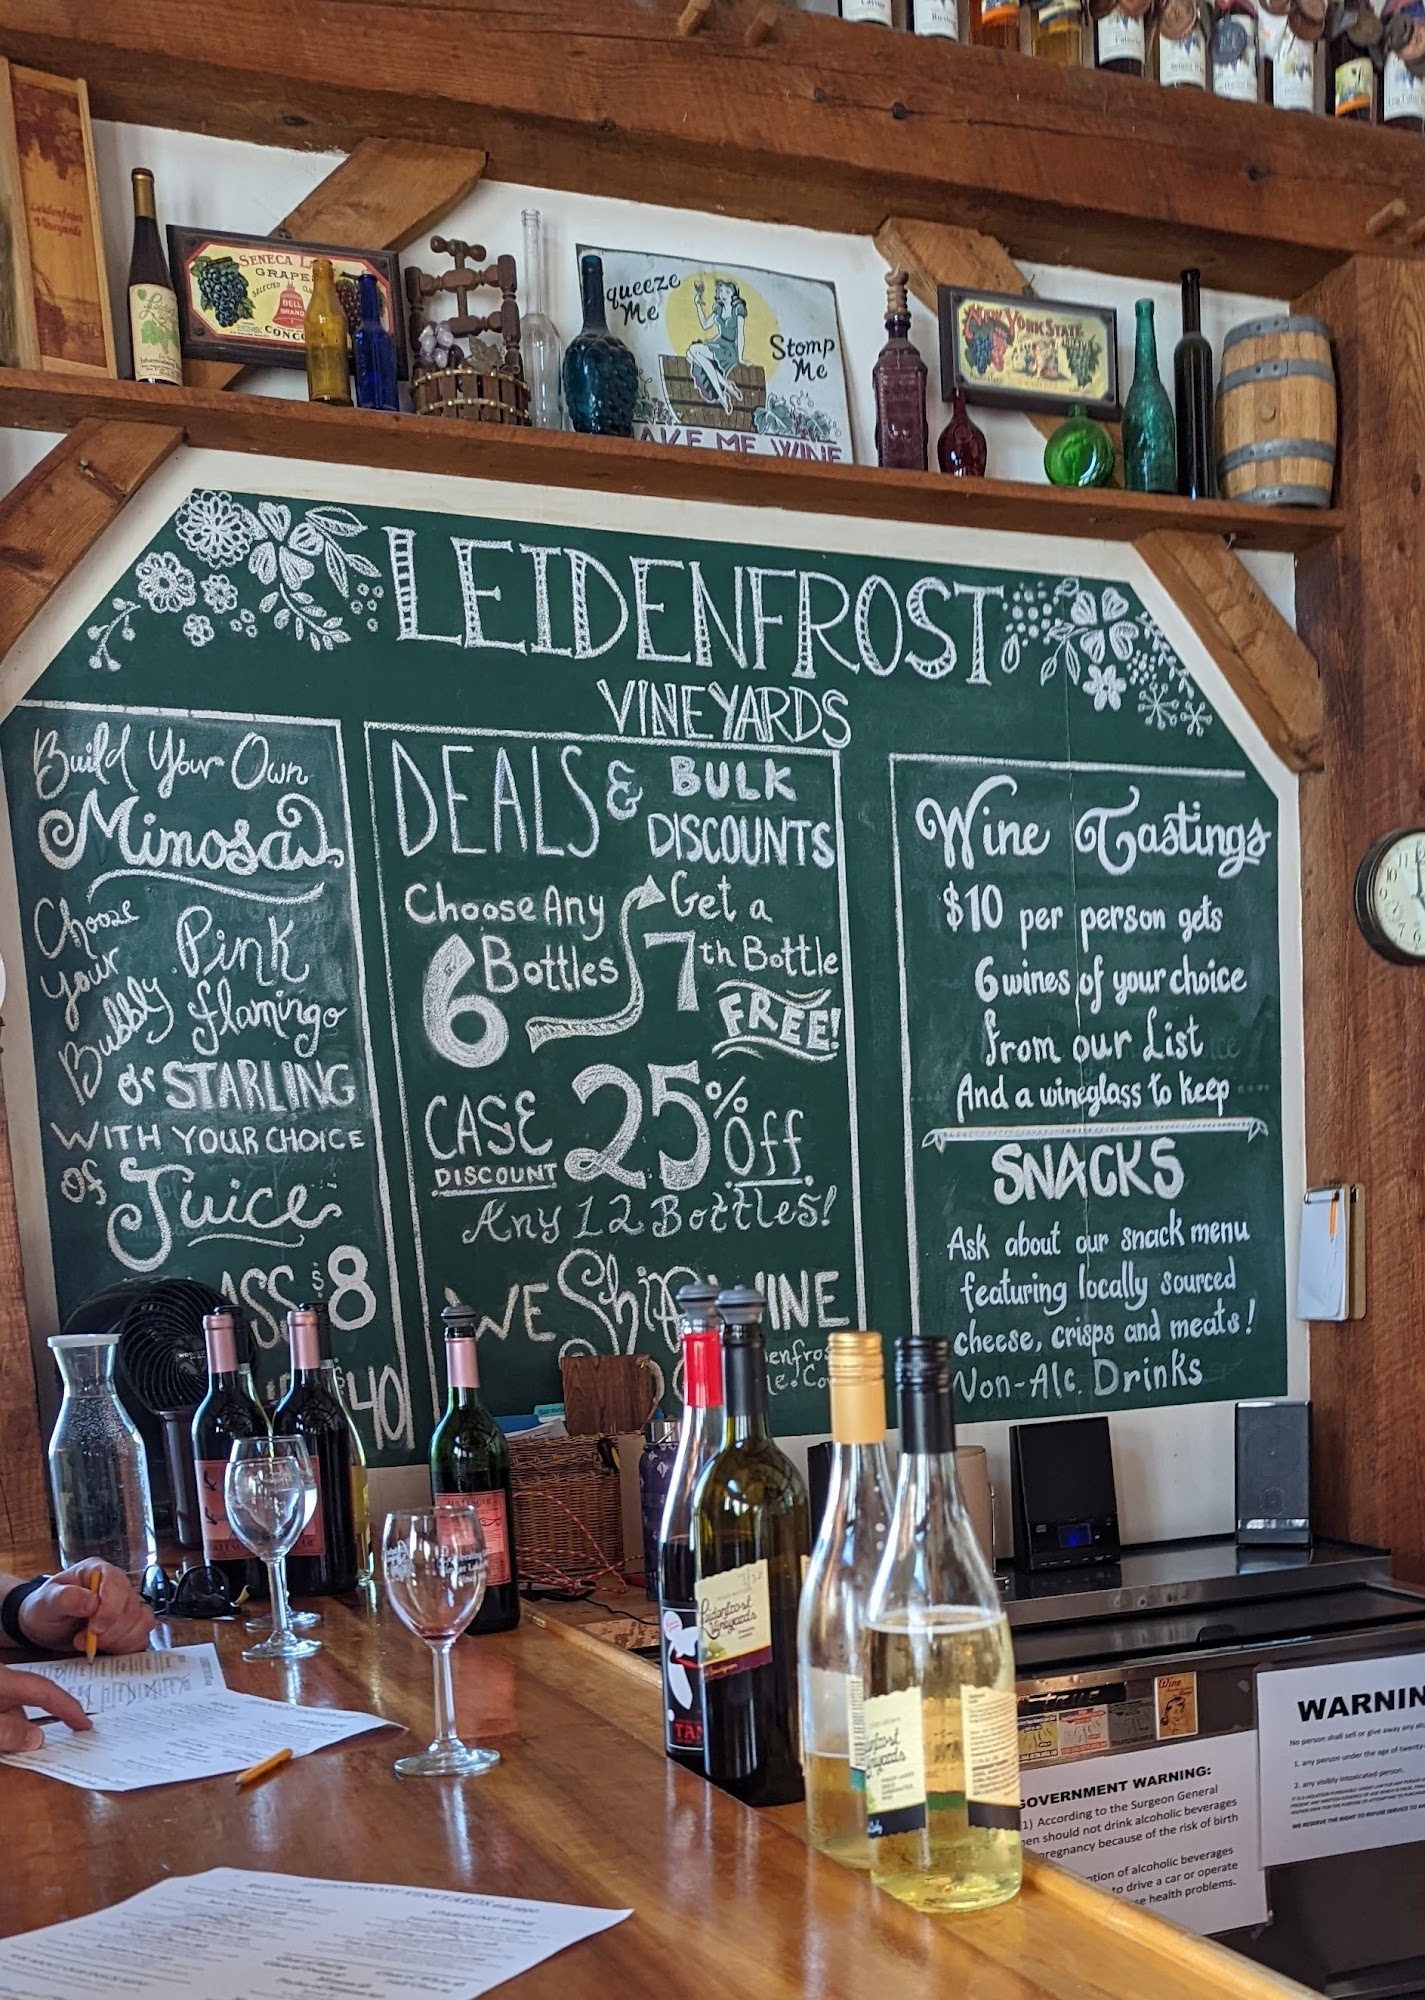 Leidenfrost
Vineyards
SENECA
GRAPE
SELECTED
BELL
BRAND
Squeeze
Me
Stomp
Me
MAKE ME WINE
NEW YORK STATE
LEIDENFROST
VINEYARDS
Build Your Own
Mimosas
Choose
Your
Bubbly
Pink
flamingo
or STARLING
WITH YOUR CHOICE
of Juice
$8
$40
DEALS & BULK
DISCOUNTS
Choose Any
6 Bottles
Get a
7th Bottle
FREE!
CASE
DISCOUNT
25% Off
Any 12 Bottles!
WE Ship WINE
Wine Tastings
$10 per person gets
6 wines of your choice
from our List
And a wineglass to keep
SNACKS
Ask about our snack menu
featuring locally sourced
cheese, crisps and meats!
Non-Alc. Drinks
Leidenfrost
Vineyards
Wine
GOVERNMENT WARNING:
1) According to the Surgeon General
should not drink alcoholic beverages
pregnancy because of the risk of birth
of alcoholic beverages
to drive a car or operate
health problems.
WARNIN
No person shall sell or give away any
1. any person under the age of twenty-
2. any visibly intoxicated person.
WE RESERVE THE RIGHT TO REFUSE SERVICE TO
SPARKLING WINE